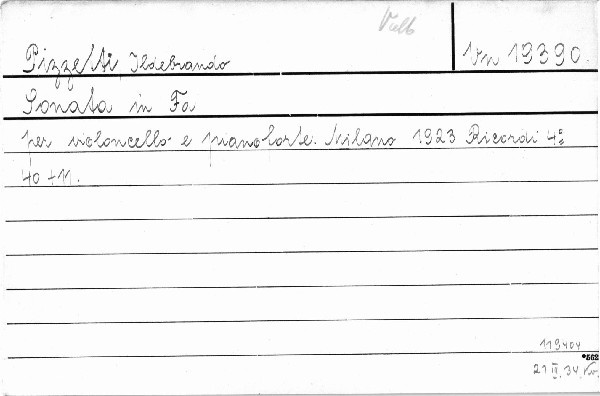 Pizzetti, Ildebrando
Vn 19390.
Sonata in Fa
per violoncello e pianoforte. Milano 1923 Ricordi 4º
40 + 11.
119404
*562
21 II. 34.